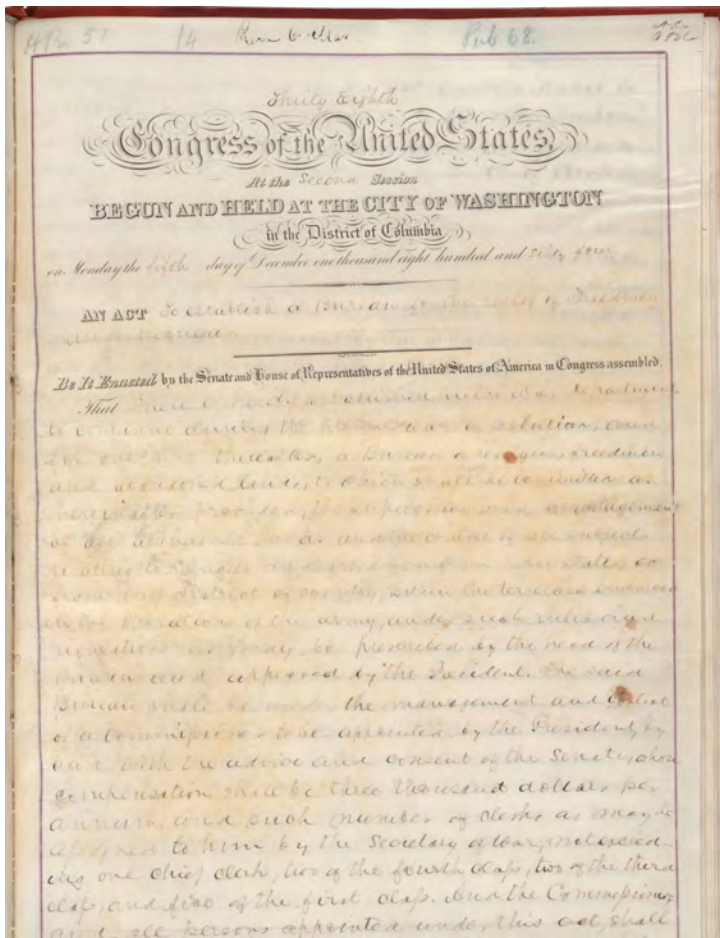 HR 51 14 Pub 68.
Thirty Eighth
Congress of the United States,
At the Second Session
BEGUN AND HELD AT THE CITY OF WASHINGTON
in the District of Columbia
on Monday the fifth day of December one thousand eight hundred and sixty four
AN ACT To establish a Bureau for the relief of Freedmen
and Refugees
Be It Enacted by the Senate and House of Representatives of the United States of America in Congress assembled.
That there is hereby established in the War Department
to continue during the present war of rebellion, and
for one year thereafter, a Bureau of refugees, freedmen
and abandoned lands, to which shall be committed as
hereinafter provided, the supervision and management
of all abandoned lands and the control of all subjects
relating to refugees and freedmen from rebel states, or
from any district of country within the territory embraced
in the operations of the army, under such rules and
regulations as may be prescribed by the head of the
Bureau and approved by the President. The said
Bureau shall be under the management and control
of a Commissioner to be appointed by the President, by
and with the advice and consent of the Senate, whose
compensation shall be three thousand dollars per
annum, and such number of clerks as may be
assigned to him by the Secretary of War, not exceed-
ing one chief clerk, two of the fourth class, two of the third
class, and five of the first class. And the Commissioner
and all persons appointed under this act, shall